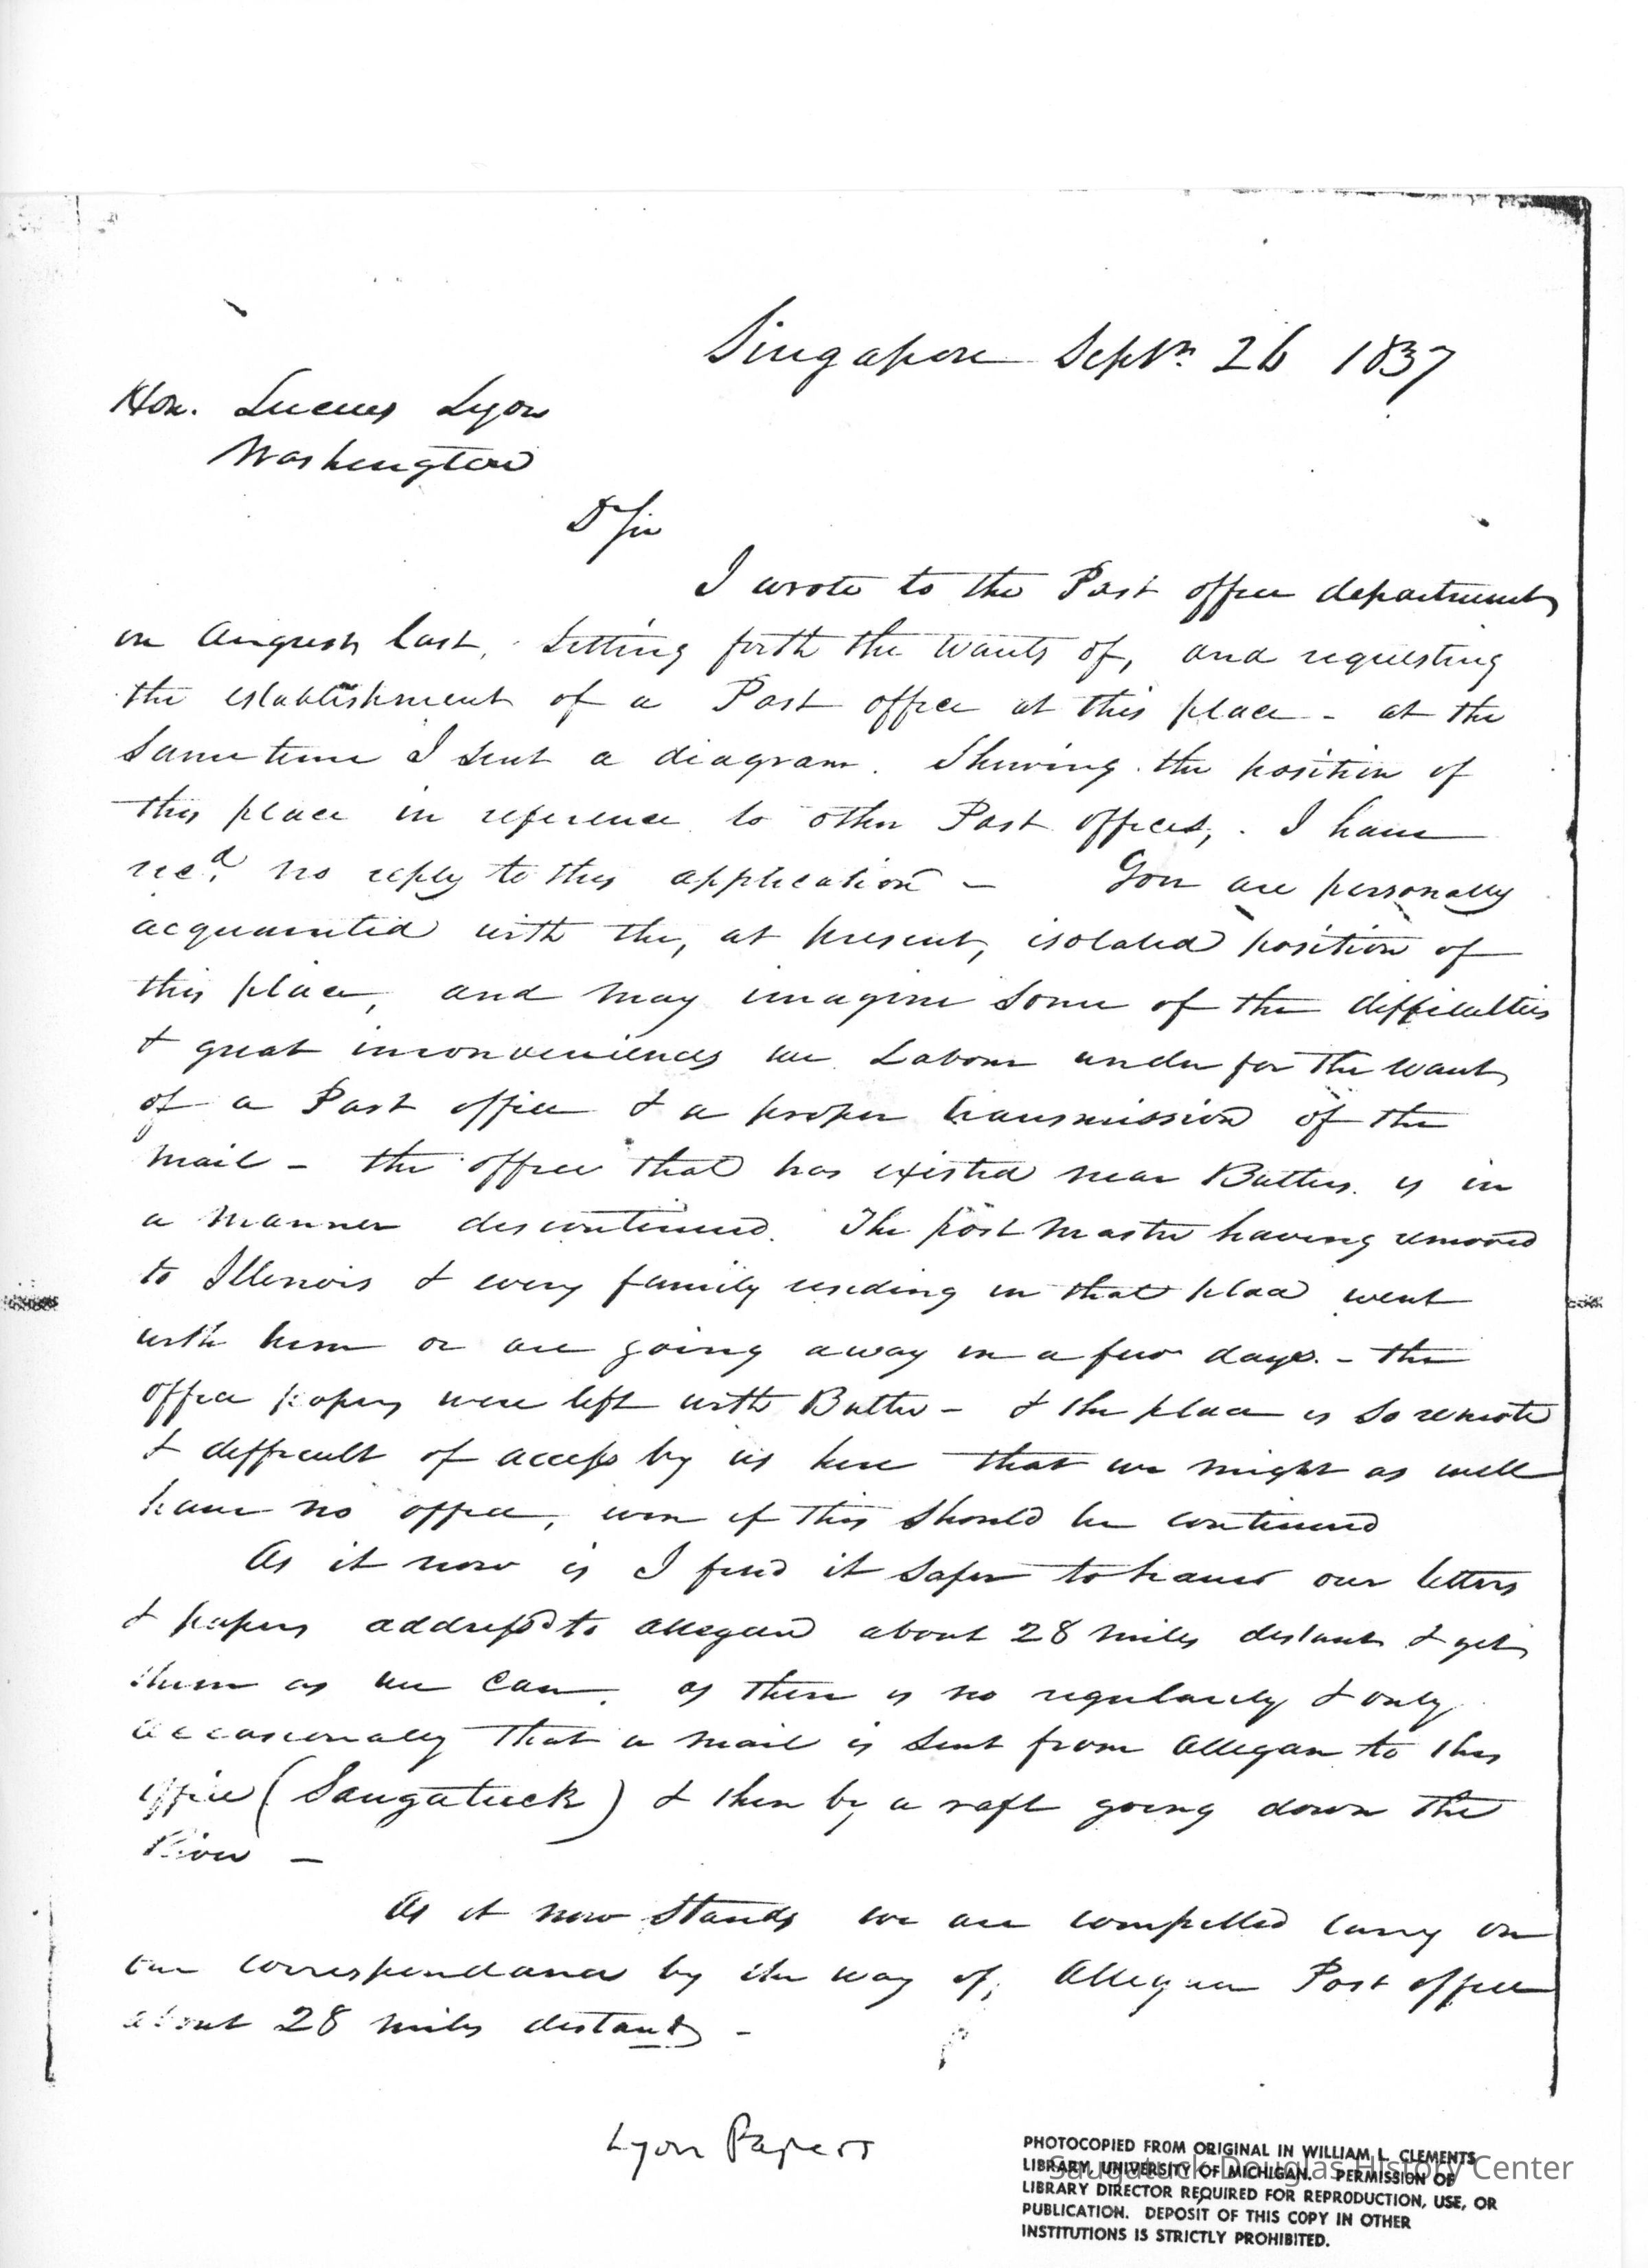 Singapore Septr. 26 1837
Hon. Lucius Lyon
Washington
D Sir
I wrote to the Post office department
in August last, setting forth the wants of, and requesting
the establishment of a Post office at this place - at the
same time I sent a diagram. Shewing the position of
this place in reference to other Post offices, . I have
recd. no reply to this application - You are personally
acquainted with the, at present, isolated position of
this place, and may imagine some of the difficulties
& great inconveniences we Labour under for the want
of a Post office & a proper transmission of the
mail - the office that has existed near Butlers is in
a manner discontinued. The post master having removed
to Illinois & every family residing in that place went
with him or are going away in a few days. - the
office papers were left with Butler - & the place is so remote
& difficult of access by us here that we might as well
have no office, even if this should be continued
As it now is I find it safer to have our letters
& papers addressed to Allegan about 28 miles distant & get
them as we can. as there is no regularity & only
occasionally that a mail is sent from Allegan to this
office (Saugatuck) & then by a raft going down the
River -
As it now stands we are compelled carry on
our correspondence by the way of, Allegan Post office
about 28 miles distant -
Lyon Papers
PHOTOCOPIED FROM ORIGINAL IN WILLIAM L. CLEMENTS
LIBRARY, UNIVERSITY OF MICHIGAN. PERMISSION OF
Saugatuck-Douglas History Center
LIBRARY DIRECTOR REQUIRED FOR REPRODUCTION, USE, OR
PUBLICATION. DEPOSIT OF THIS COPY IN OTHER
INSTITUTIONS IS STRICTLY PROHIBITED.